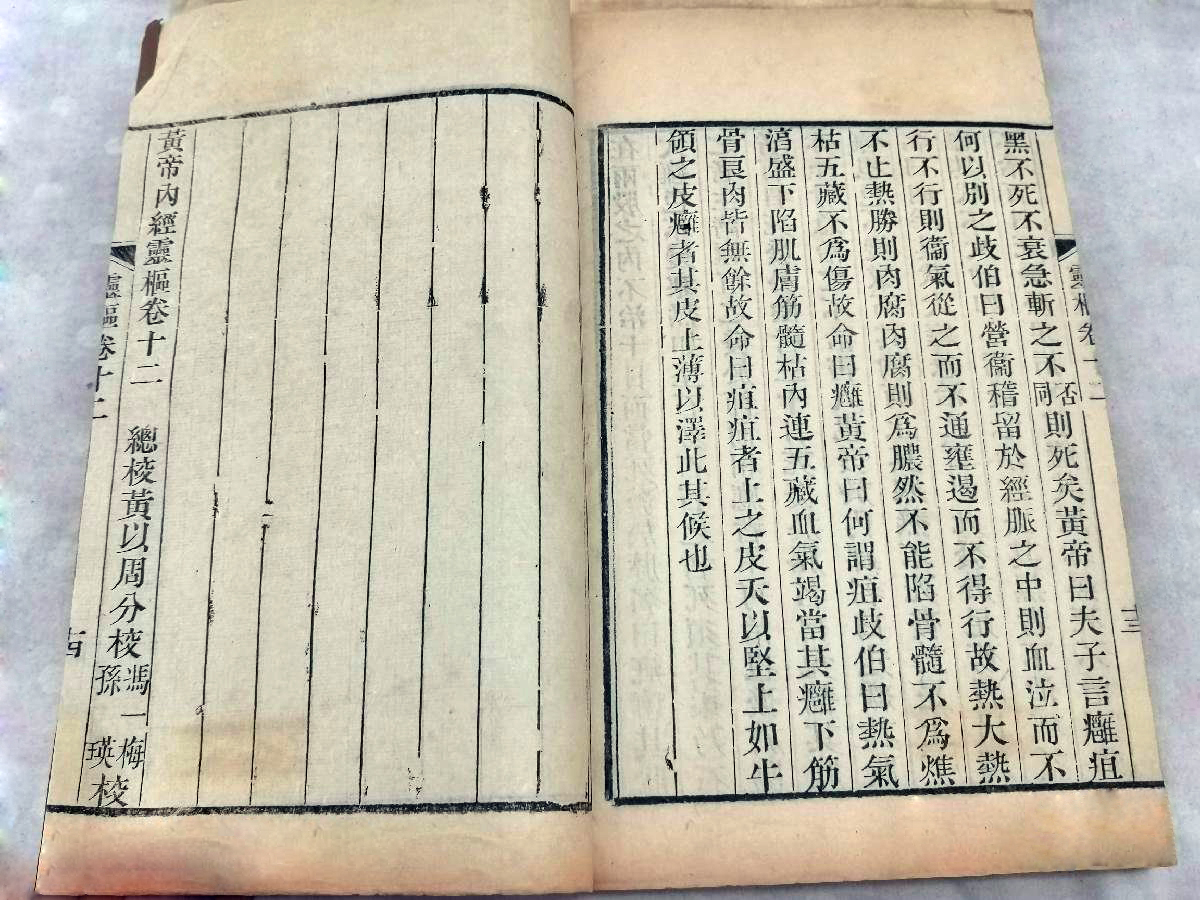 靈樞卷十二
十三
黑不死不衰急斬之不否同則死矣黃帝曰夫子言癰疽
何以別之歧伯曰營衞稽留於經脈之中則血泣而不
行不行則衞氣從之而不通壅遏而不得行故熱大熱
不止熱勝則肉腐肉腐則爲膿然不能陷骨髓不爲燋
枯五藏不爲傷故命曰癰黃帝曰何謂疽歧伯曰熱氣
淯盛下陷肌膚筋髓枯內連五藏血氣竭當其癰下筋
骨艮肉皆無餘故命曰疽疽者上之皮夭以堅上如牛
領之皮癰者其皮上薄以澤此其候也
黃帝內經靈樞卷十二 總校黃以周分校馮一梅孫瑛校
靈樞卷十二
十四